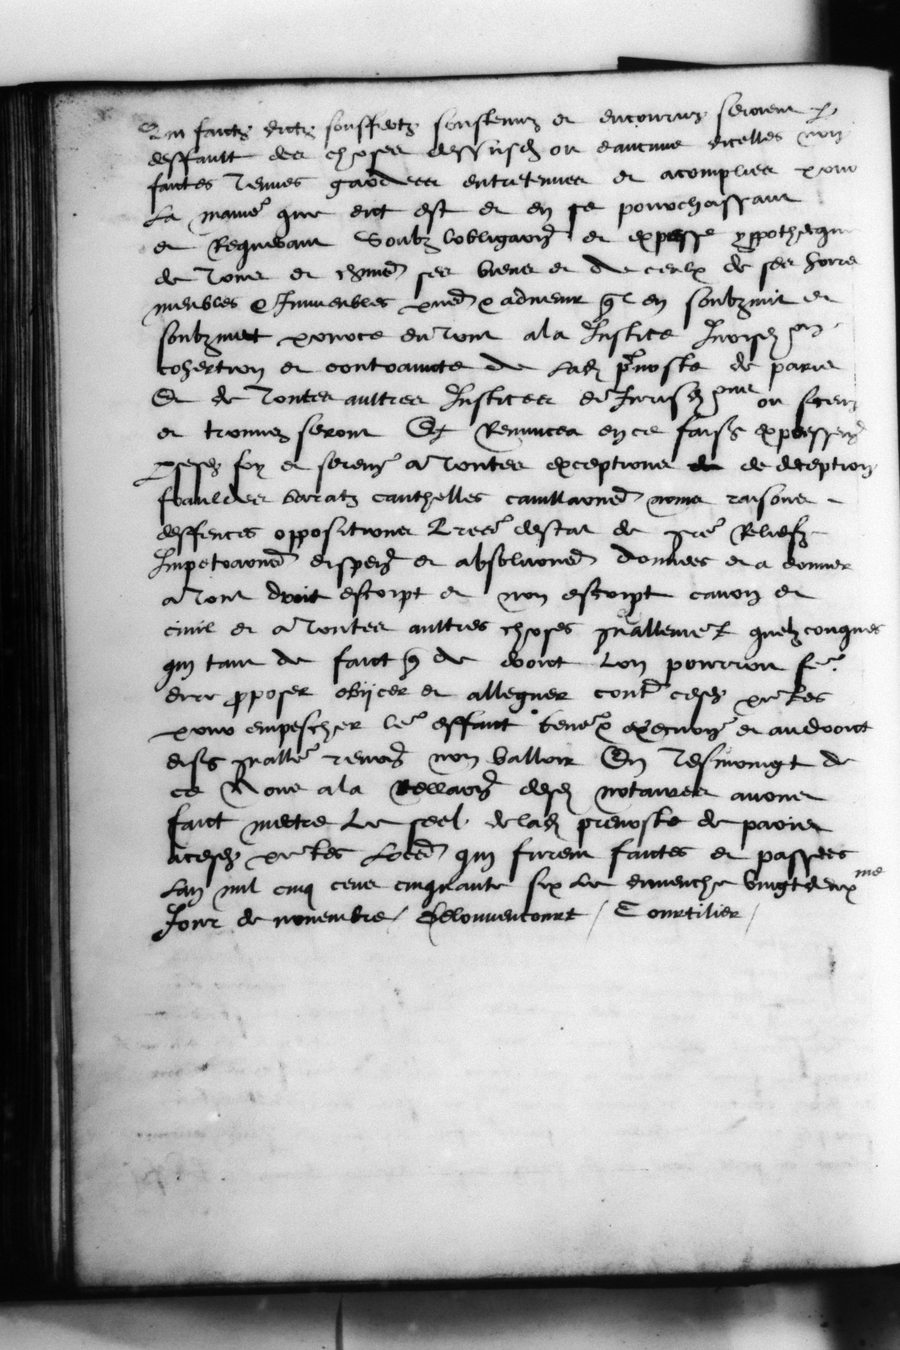 Qui faictz dictz souffertz soustenuz et encourruz seroient p
deffault des choses dessusd ou daucune dicelles non
faictes tenues gardees entretenues et acomplies pour
La maniere que dict est et en ce pourchassant
et Requerant Soubz lobligaon et expresse ypothecque
de tous et chuns ses biens et de ceulx de ses hoirs
meubles & Immeubles pns & advenir ql en soubzmit et
soubzmect pource du tout a la Justice Juridon
cohertion et contraincte de Lad prevoste de paris
Et de toutes aultres Justices et Jurisdons ou sceuz
et trouvez seront Et Renoncea en ce faist expressemt
Lesd foy et seremt a toutes exceptions de deception
fraulder barratz cauthelles cavillaons noms raisons
deffences oppositions Lres destat de pre Reliefz
Impetraons dispens et absoluons donnees et a donner
a tout droit escript et non escript canon et
civil et a toutes aultres choses gnallement quelzconques
qui tant de faict q de droict Lon pourroit fe
dire proposer obijcer et alleguer contre cesd pntes
pour empescher le effaict teneur & execuon et au droict
dist gnalle renon non valloir En tesmoingt de
ce Nous a la Rellaon desd notaires avons
faict mectre Le seel de lad prevoste de paris
a cesd pntes Lres qui furent faictes et passees
Lan mil cinq cens cinquante six Le dimenche vingtdeuxme
Jour de novembre / Delouvencourt / Courtilier /